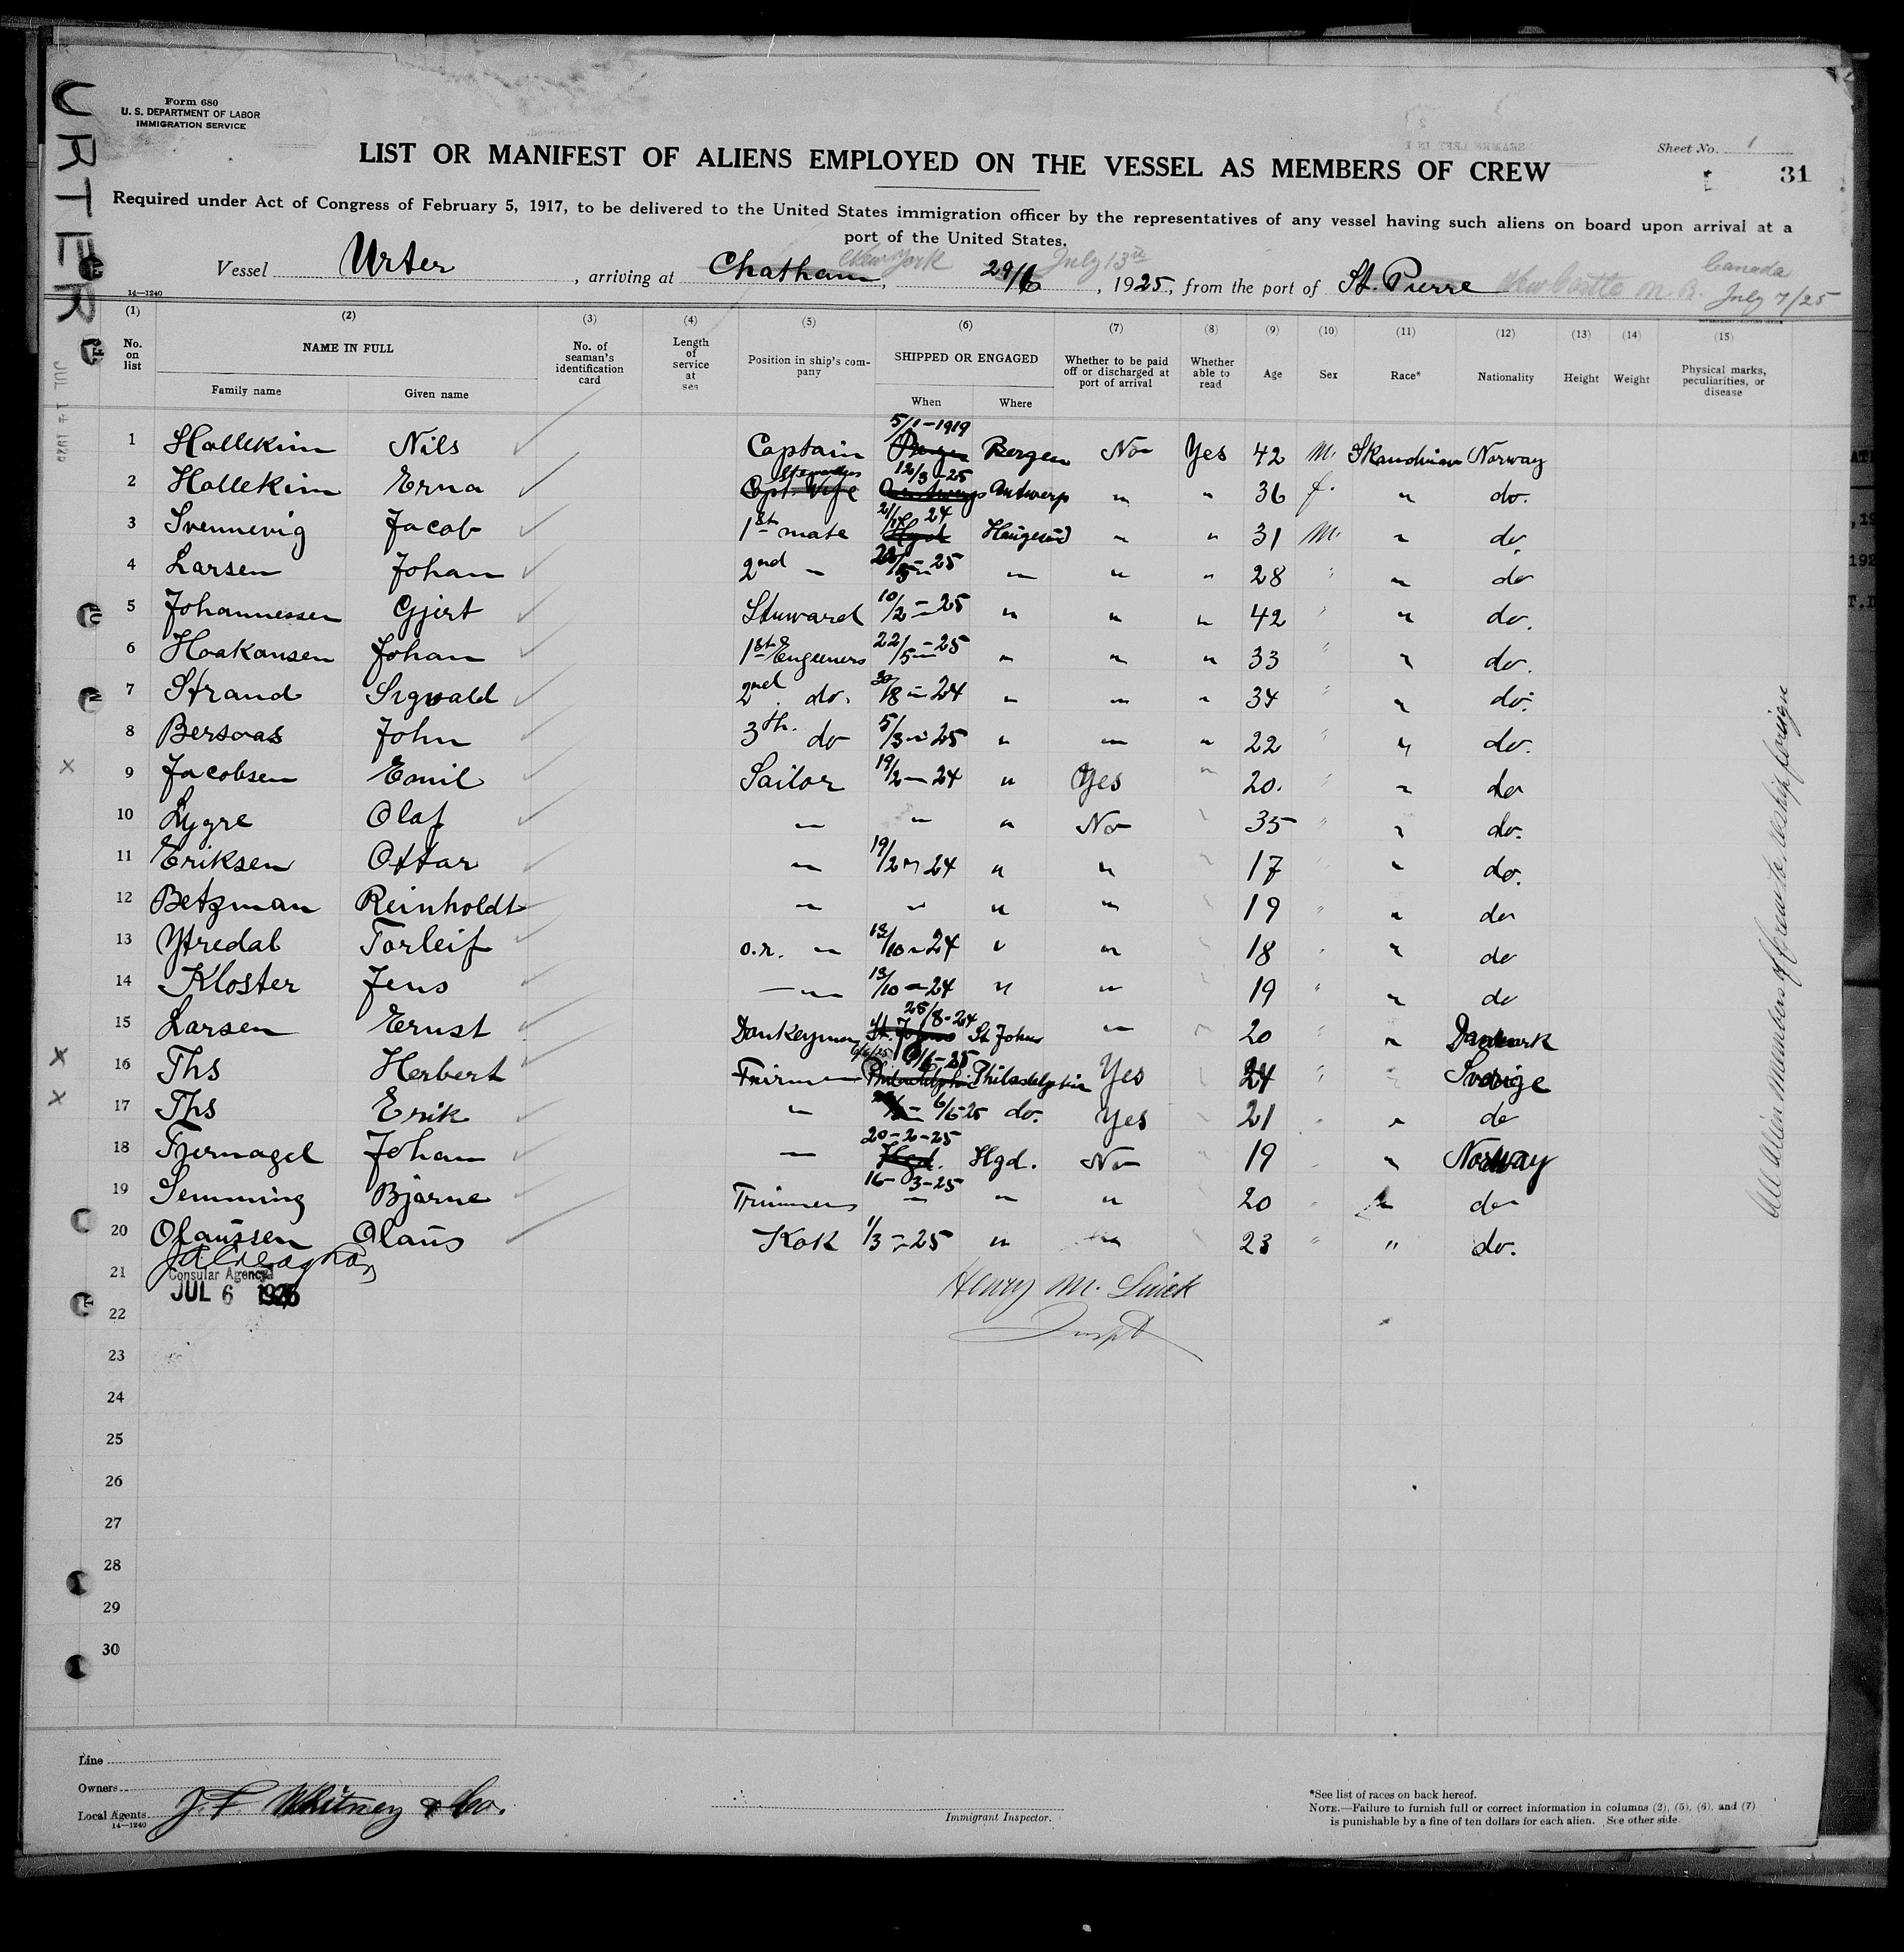 URTER
Form 680
U. S. DEPARTMENT OF LABOR
IMMIGRATION SERVICE
Sheet No. 1
31
LIST OR MANIFEST OF ALIENS EMPLOYED ON THE VESSEL AS MEMBERS OF CREW
Required under Act of Congress of February 5, 1917, to be delivered to the United States immigration officer by the representatives of any vessel having such aliens on board upon arrival at a
port of the United States.
New York July 13th Canada
Vessel Urter, arriving at Chatham, 29/6, 1925, from the port of St. Pierre New Castle N. B. July 7/25
14—1240
(1) (2) (3) (4) (5) (6) (7) (8) (9) (10) (11) (12) (13) (14) (15)
No. on list NAME IN FULL Family name Given name No. of seaman's identification card Length of service at sea Position in ship's company SHIPPED OR ENGAGED When Where Whether to be paid off or discharged at port of arrival Whether able to read Age Sex Race* Nationality Height Weight Physical marks, peculiarities, or disease
1 Hallekim Nils Captain 5/1-1919 Bergen No Yes 42 M. Skandinav Norway
2 Hallekim Erna Capt. Wife Stewardess 12/3-25 Antwerp " " 36 f. " do.
3 Svennevig Jacob 1st mate 24 Haugesund " " 31 M. " do.
4 Larsen Johan 2nd " 25 " " " 28 " " do
5 Johannessen Gjert Stuward 10/2-25 " " " 42 " " do.
6 Haakansen Johan 1st Engeeners 22/5-25 " " " 33 " " do.
7 Strand Sigvald 2nd do. 30/8-24 " " " 34 " " do.
8 John 3th. do 5/3-25 " " " 22 " " do.
9 Jacobsen Emil Sailor 19/2-24 " Yes " 20. " " do
10 Lygre Olaf " " " No " 35 " " do.
11 Eriksen Ottar " 19/2-24 " " " 17 " do.
12 Betzman Reinholdt " " " " 19 " " do
13 Ytredal Torleif o.n. " 13/10-24 " " " 18 " " do
14 Kloster Jens " 13/10-24 " " " 19 " " do
15 Larsen Ernst Donkeyman 25/8-24 St Johns " " 20 " Danmark
16 Ths Herbert Fuirman 6/6-25 Philadelphia Yes " 24 " " Sverige
17 Ths Erik " 6/6-25 do. Yes " 21 " " do
18 Johan " 20-2-25 Hgd. Hgd. No " 19 " " Norway
19 Semming Bjarne Trimmers 16-3-25 " " " 20 " " do
20 Olaussen Olaus Kok 1/3-25 " " " 23 " " do.
21
Consular Agency
JUL 6 1925
Henry M.
Inspt
22
23
24
25
26
27
28
29
30
All alien members of crew to reship foreign
Line
Owners
Local Agents J. F. Whitney & Co.
14—1240
Immigrant Inspector.
*See list of races on back hereof.
NOTE.—Failure to furnish full or correct information in columns (2), (5), (6), and (7)
is punishable by a fine of ten dollars for each alien. See other side.